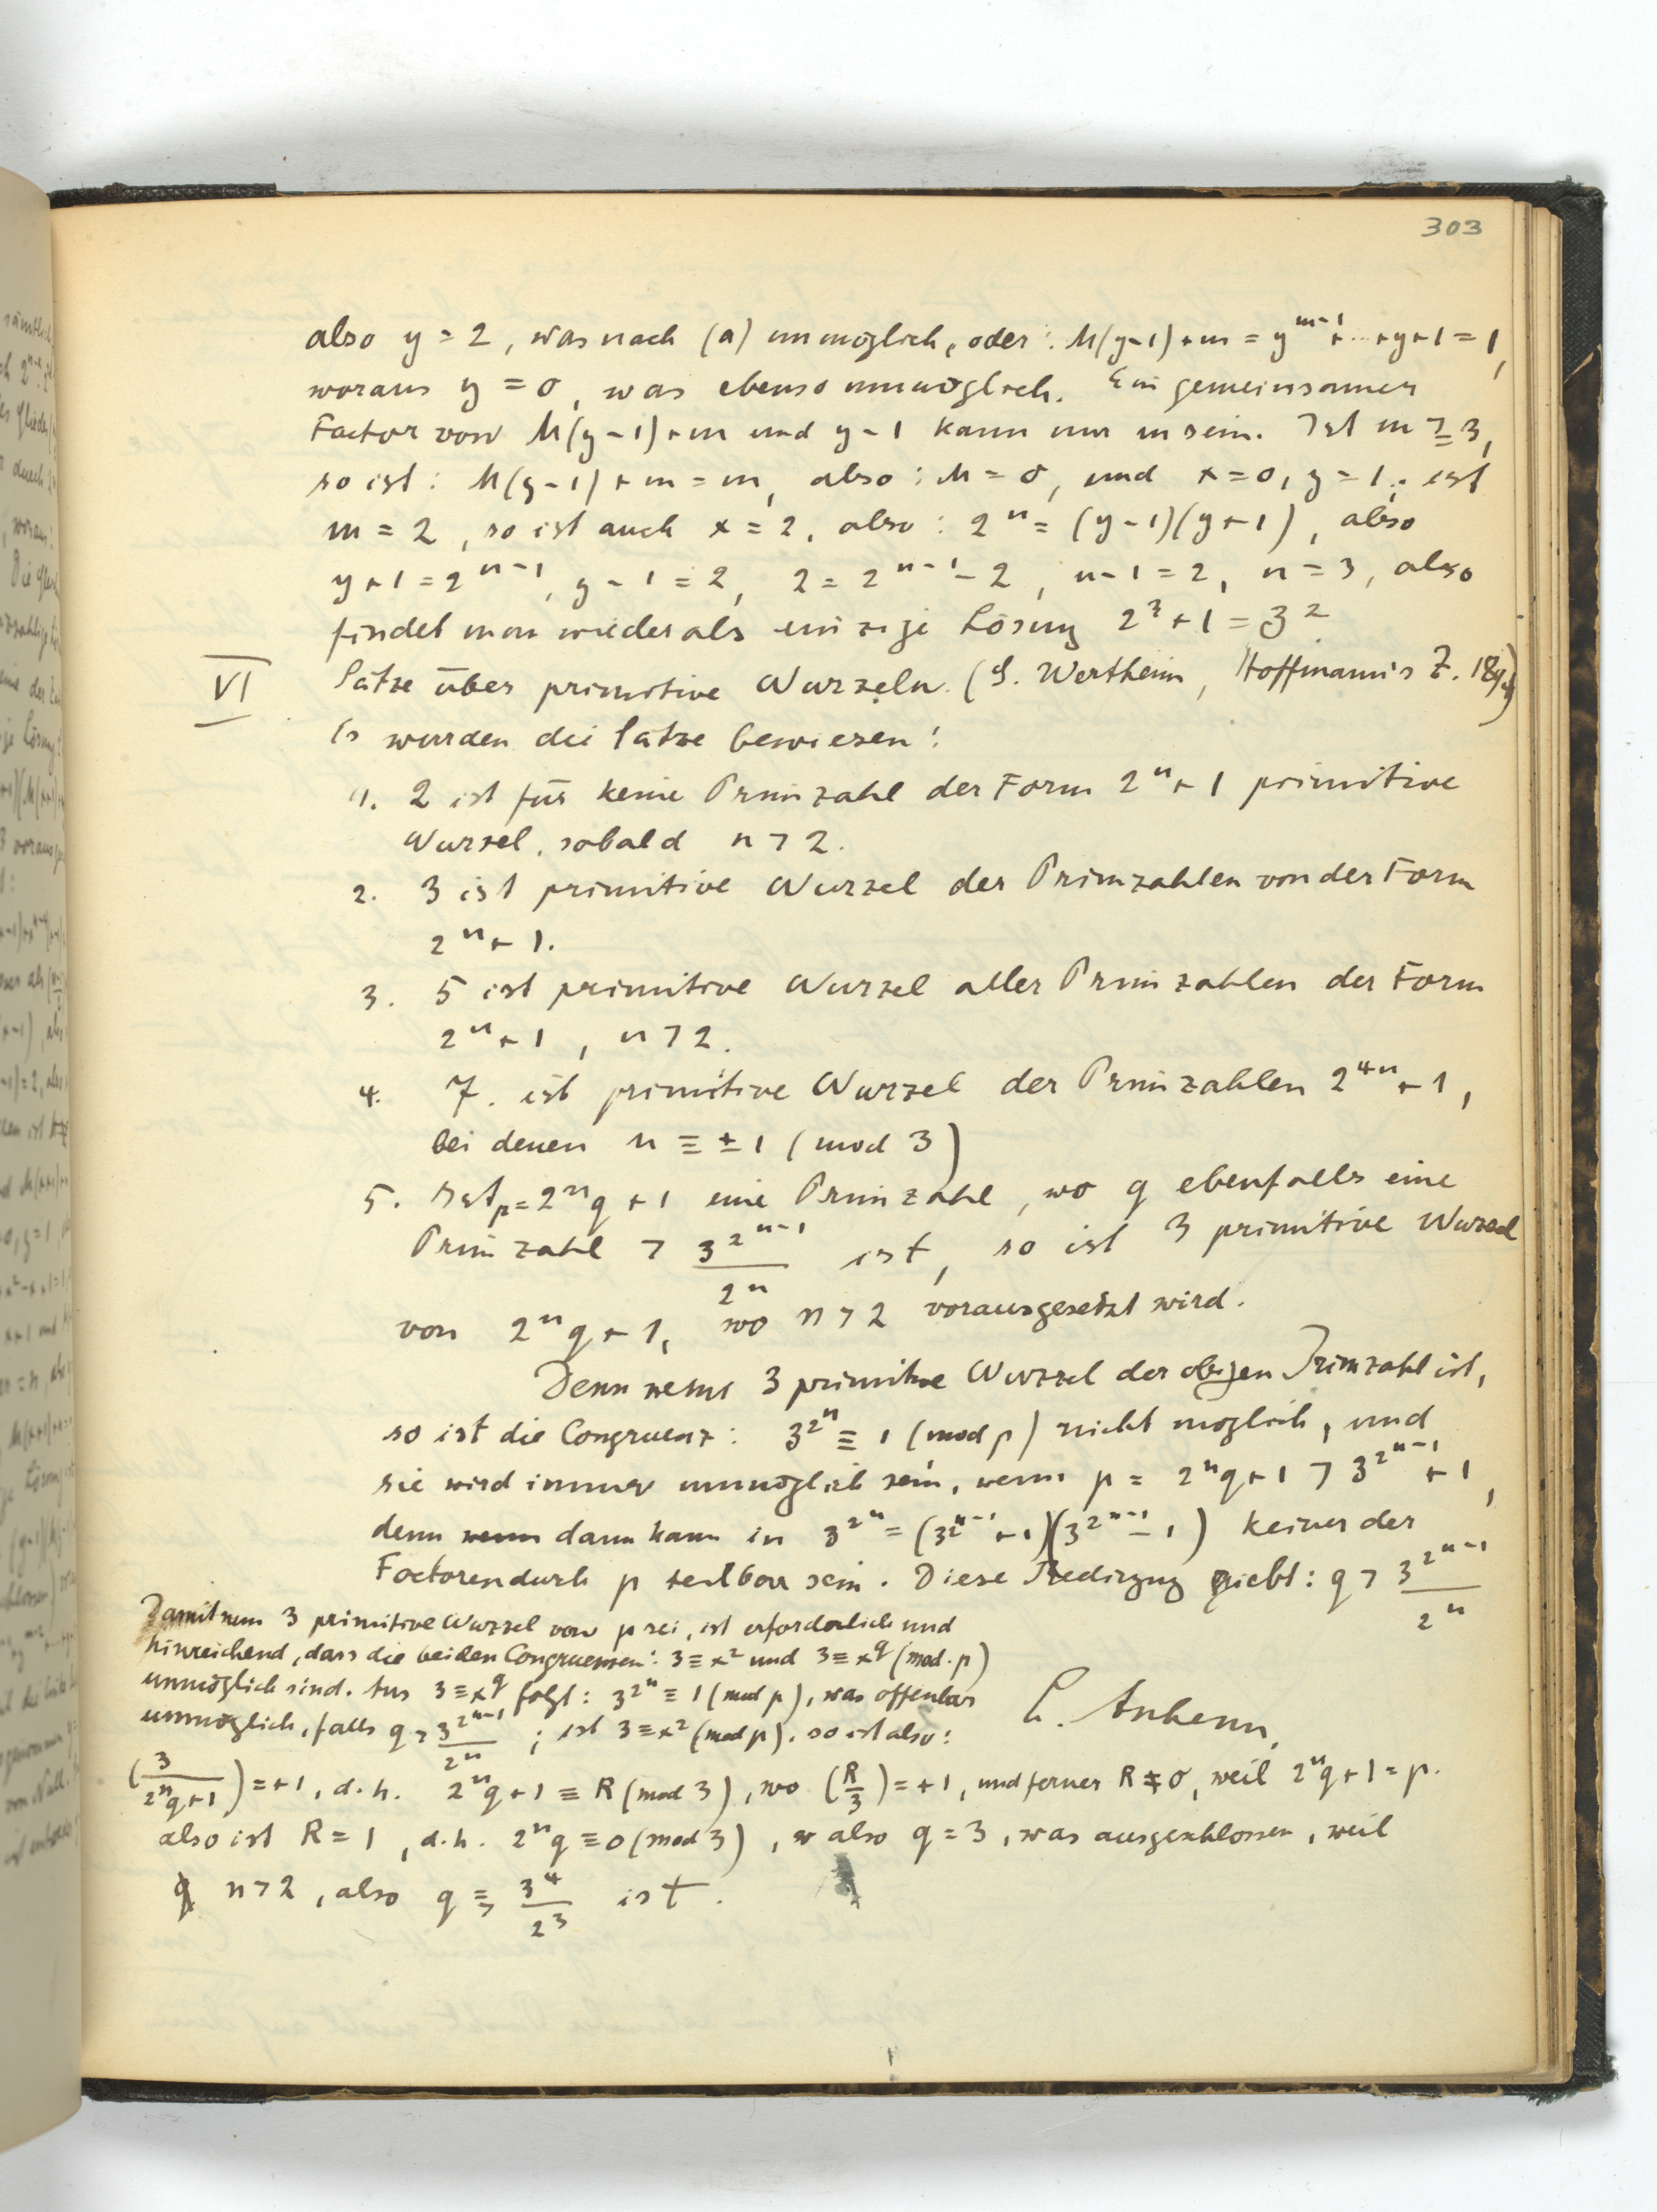 303
also y = 2, was nach (a) unmöglich, oder: M(y-1)+m = y^{m-1}+...+y+1 = 1,
woraus y = 0, was ebenso unmöglich. Ein gemeinsamer
Factor von M(y-1)+m und y-1 kann nur m sein. Ist m ≧ 3,
so ist: M(y-1)+m = m, also: M = 0, und x = 0, y = 1; ist
m = 2, so ist auch x = 2, also: 2^n = (y-1)(y+1), also
y+1 = 2^{n-1}, y-1 = 2, 2 = 2^{n-1}-2, n-1 = 2, n = 3, also
findet man wieder als einzige Lösung 2^3+1 = 3^2
VI Sätze über primitive Wurzeln. (G. Wertheim, Hoffmann's Z. 1894)
Es wurden die Sätze bewiesen:
1. 2 ist für keine Primzahl der Form 2^n+1 primitive
Wurzel, sobald n > 2.
2. 3 ist primitive Wurzel der Primzahlen von der Form
2^n+1.
3. 5 ist primitive Wurzel aller Primzahlen der Form
2^n+1, n > 2.
4. 7. ist primitive Wurzel der Primzahlen 2^{4n}+1,
bei denen n ≡ ±1 (mod 3)
5. Ist p = 2^n q+1 eine Primzahl, wo q ebenfalls eine
Primzahl > 3^{2^{n-1}}/2^n ist, so ist 3 primitive Wurzel
von 2^n q+1, wo n > 2 vorausgesetzt wird.
Denn wenn 3 primitive Wurzel der obigen Primzahl ist,
so ist die Congruenz: 3^{2^n} ≡ 1 (mod p) nicht möglich, und
sie wird immer unmöglich sein, wenn p = 2^n q+1 > 3^{2^{n-1}}+1,
denn wenn dann kann in 3^{2^n} = (3^{2^{n-1}}+1)(3^{2^{n-1}}-1) keiner der
Factoren durch p teilbar sein. Diese Bedingung giebt: q > 3^{2^{n-1}}/2^n
Damit nun 3 primitive Wurzel von p sei, ist erforderlich und
hinreichend, dass die beiden Congruenzen: 3 ≡ x^2 und 3 ≡ x^q (mod. p)
unmöglich sind. Aus 3 ≡ x^q folgt: 3^{2^n} ≡ 1 (mod p), was offenbar
unmöglich, falls q > 3^{2^{n-1}}/2^n; ist 3 ≡ x^2 (mod p). so ist also:
(3/(2^n q+1)) = +1, d. h. 2^n q+1 ≡ R (mod 3), wo (R/3) = +1, und ferner R ≠ 0, weil 2^n q+1 = p.
also ist R = 1, d. h. 2^n q ≡ 0 (mod 3), also q = 3, was ausgeschlossen, weil
n > 2, also q ≧ 3^4/2^3 ist.